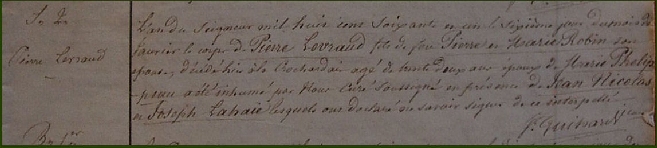 Se. Re.
Pierre Lerraud
L'an du Seigneur mil huit cent soixante et un le sixième jour du mois de
Janvier le corps de Pierre Lerraud fils de feu Pierre et Marie Robin son
épouse, décédé hier à la agé de trente deux ans époux de Marie Phelip
a été inhumé par Nous Curé soussigné en présence de Jean Nicolas
et Joseph Lahaie lesquels ont declaré ne savoir signer de ce interpellé
Guitard